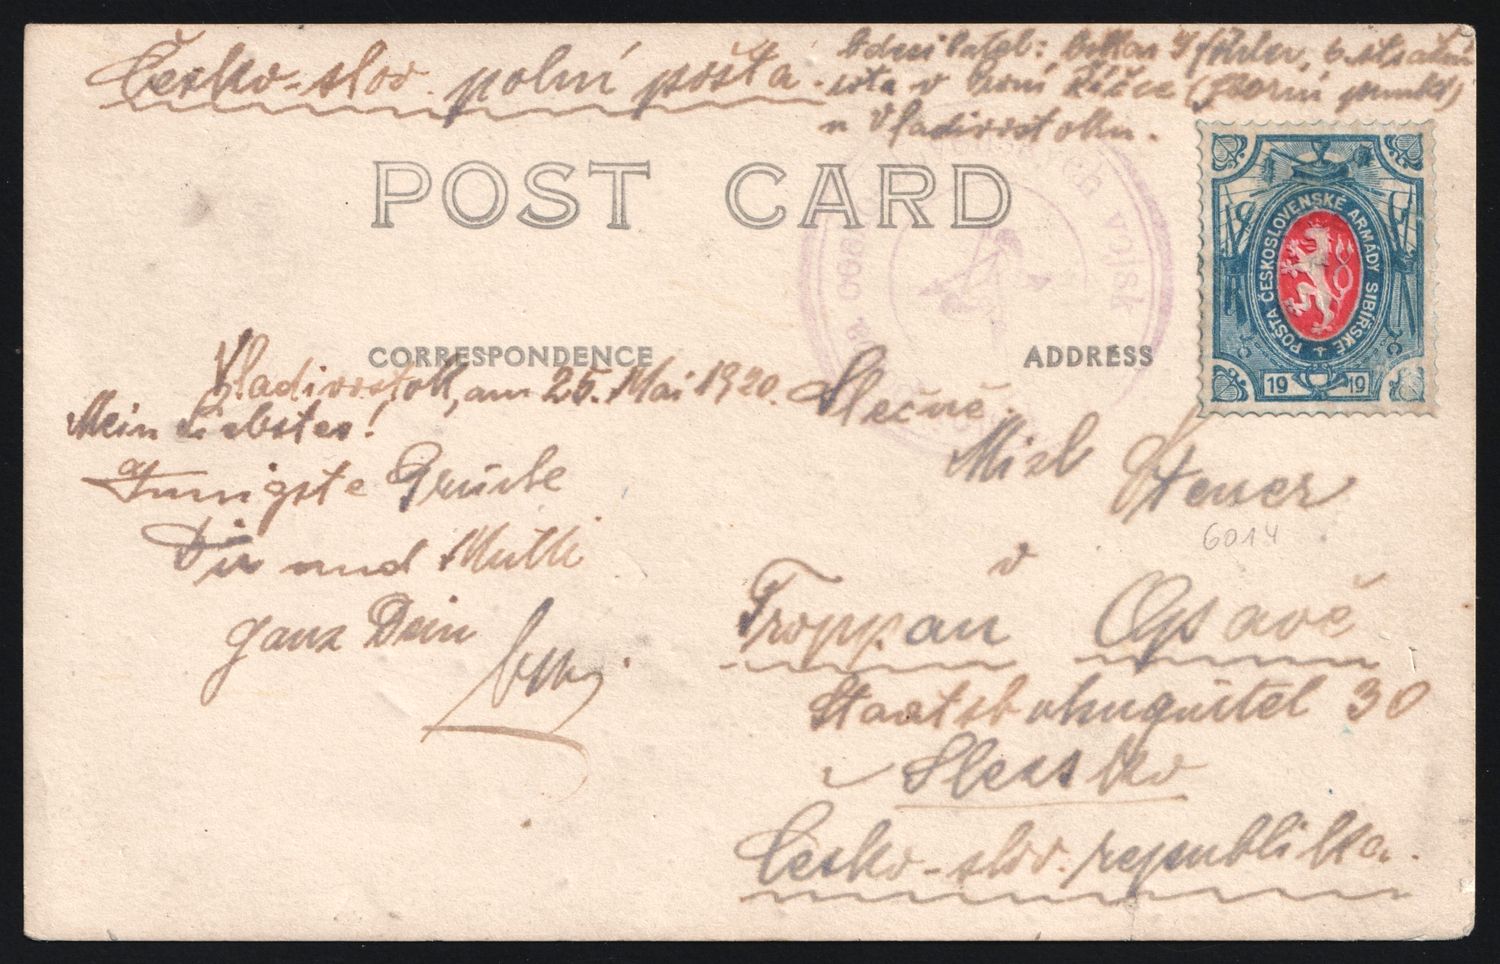 Česko-slov. polní pošta
Odesílatel: Oskar
v První Říčce
u Vladivostoku.
POST CARD
vojsk
POŠTA ČESKOSLOVENSKÉ ARMÁDY SIBIŘSKÉ
19 19
CORRESPONDENCE
ADDRESS
Vladivostok, am 25. Mai 1920.
Mein Liebstes!
Innigste Grüsse
Dir und Mutti
ganz Dein
Slečně
Mizl
6014
v
Troppau Opavě
30
Slezsko
Česko-slov. republika.